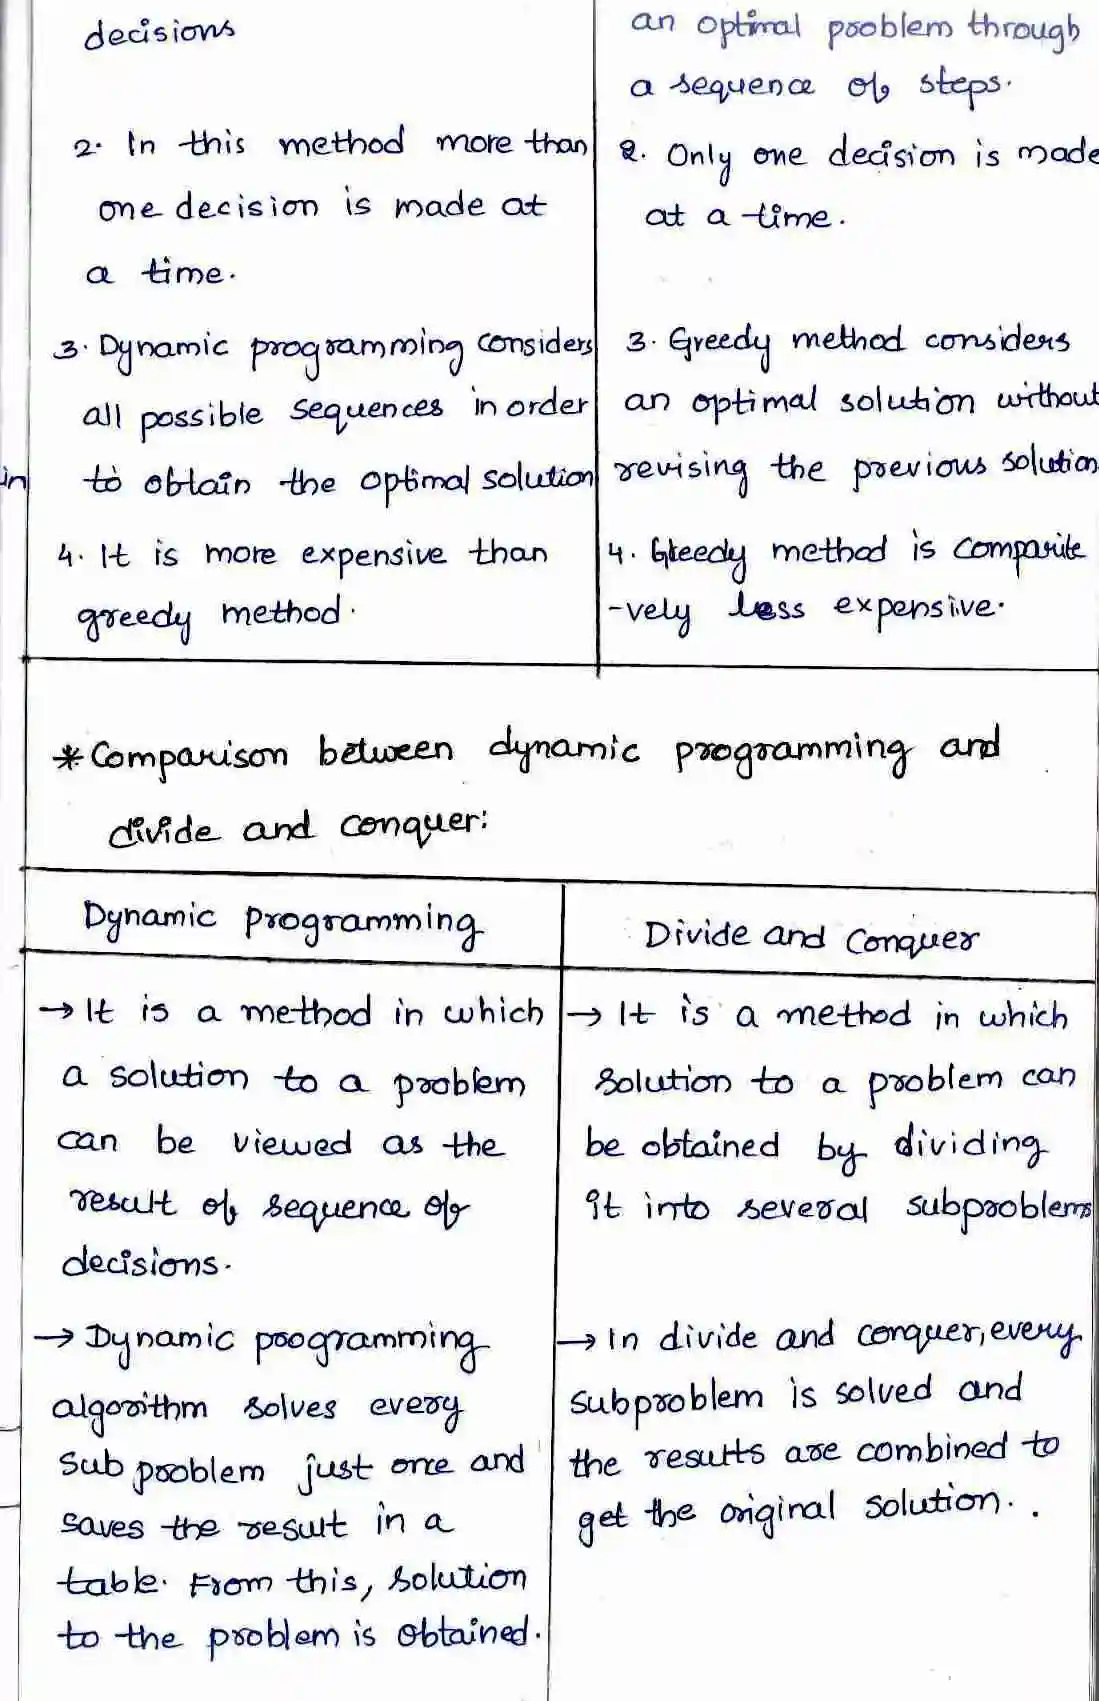 decisions
2. In this method more than
one decision is made at
a time.
3. Dynamic programming considers
all possible sequences in order
to obtain the optimal solution
4. It is more expensive than
greedy method.
an optimal problem through
a sequence of steps.
2. Only one decision is made
at a time.
3. Greedy method considers
an optimal solution without
revising the previous solution
4. Greedy method is comparite
-vely less expensive.
in
*Comparison between dynamic programming and
divide and conquer:
Dynamic programming
→ It is a method in which
a solution to a problem
can be viewed as the
result of sequence of
decisions.
→ Dynamic programming
algorithm solves every
sub problem just once and
saves the result in a
table. From this, solution
to the problem is obtained.
Divide and Conquer
→ It is a method in which
solution to a problem can
be obtained by dividing
it into several subproblems
→ In divide and conquer, every
subproblem is solved and
the results are combined to
get the original solution.